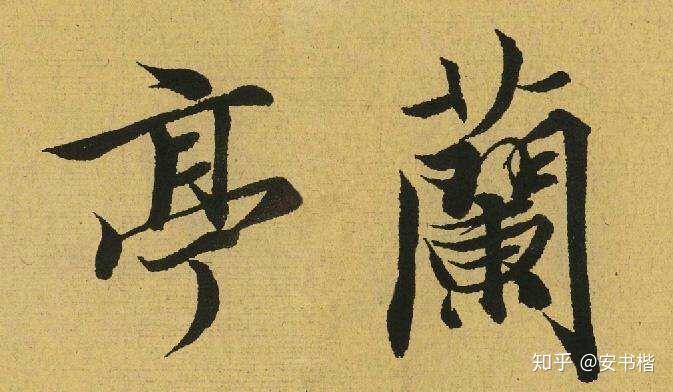 蘭亭
知乎 @安书楷